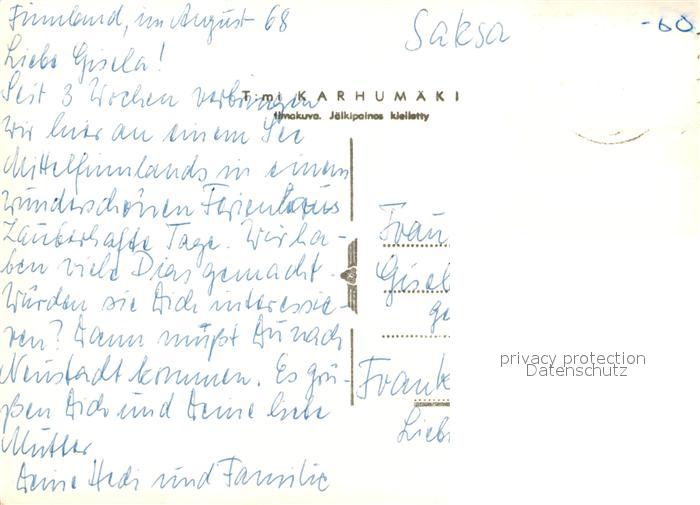 Finnland, im August 68
Liebe Gisela!
Seit 3 Wochen verbringen
wir hier an einem See
Mittelfinnlands in einem
wunderschönen Ferienhaus
zauberhafte Tage. Wir ha-
ben viele Dias gemacht.
Würden sie Dich interessie-
ren? Dann mußt Du nach
Neustadt kommen. Es grü-
ßen Dich und Deine liebe
Mutter
Deine Hedi und Familie
Saksa
-60
T:mi KARHUMÄKI
Ilmakuva. Jälkipainos kielletty
Frau
Gisel
ge
Frank
Lieb
privacy protection
Datenschutz